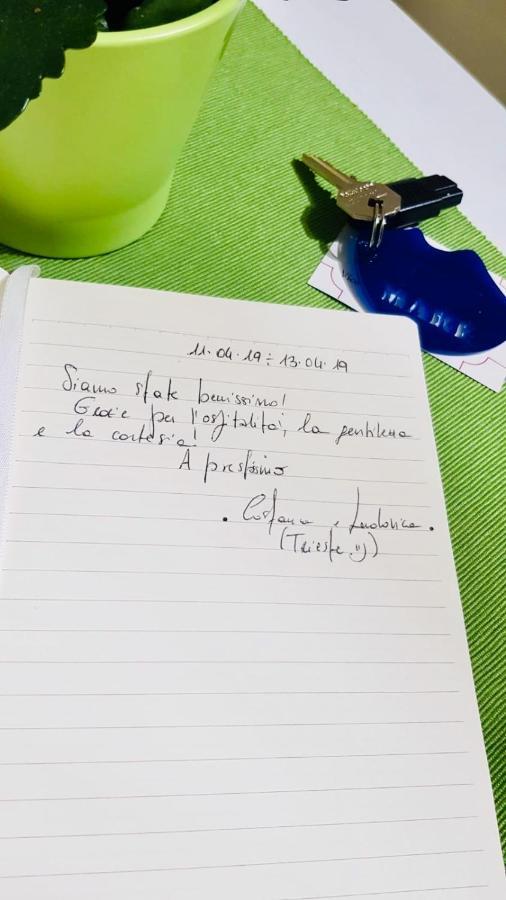 11.04.19 ÷ 13.04.19
Siamo state benissimo!
Grazie per l'ospitalità, la gentilezza
e la cortesia!
A prestissimo
. Costanza e Ludovica.
(Trieste :))